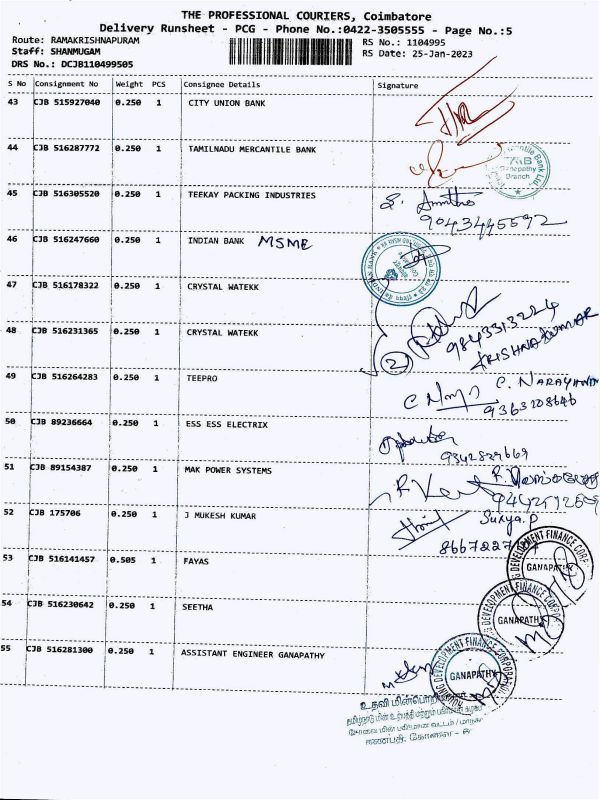 THE PROFESSIONAL COURIERS, Coimbatore
Delivery Runsheet - PCG - Phone No.:0422-3505555 - Page No.:5
Route: RAMAKRISHNAPURAM RS No.: 1104995
Staff: SHANMUGAM RS Date: 25-Jan-2023
DRS No.: DCJB110499505
S No Consignment No. Weight PCS Consignee Details Signature
43 CJB 515927040 0.250 1 CITY UNION BANK
44 CJB 516287772 0.250 1 TAMILNADU MERCANTILE BANK
Mercantile Bank Ltd.
TMB
Ganapathy
Branch
45 CJB 516305520 0.250 1 TEEKAY PACKING INDUSTRIES
9043445592
46 CJB 516247660 0.250 1 INDIAN BANK MSME
INDIAN BANK
47 CJB 516178322 0.250 1 CRYSTAL WATEKK
9843313224
KRISHNAKUMAR
48 CJB 516231365 0.250 1 CRYSTAL WATEKK
2
49 CJB 516264283 0.250 1 TEEPRO
C. NARAYANAN
9363208646
50 CJB 89236664 0.250 1 ESS ESS ELECTRIX
9342829669
51 CJB 89154387 0.250 1 MAK POWER SYSTEMS
52 CJB 175706 0.250 1 J MUKESH KUMAR
Surya.P
53 CJB 516141457 0.505 1 FAYAS
DEVELOPMENT FINANCE CORP
GANAPATHY
54 CJB 516230642 0.250 1 SEETHA
DEVELOPMENT FINANCE CORPO
GANAPATHY
55 CJB 516281300 0.250 1 ASSISTANT ENGINEER GANAPATHY
HOUSING DEVELOPMENT FINANCE CORPORATION
GANAPATHY
உதவி மின்பொறி